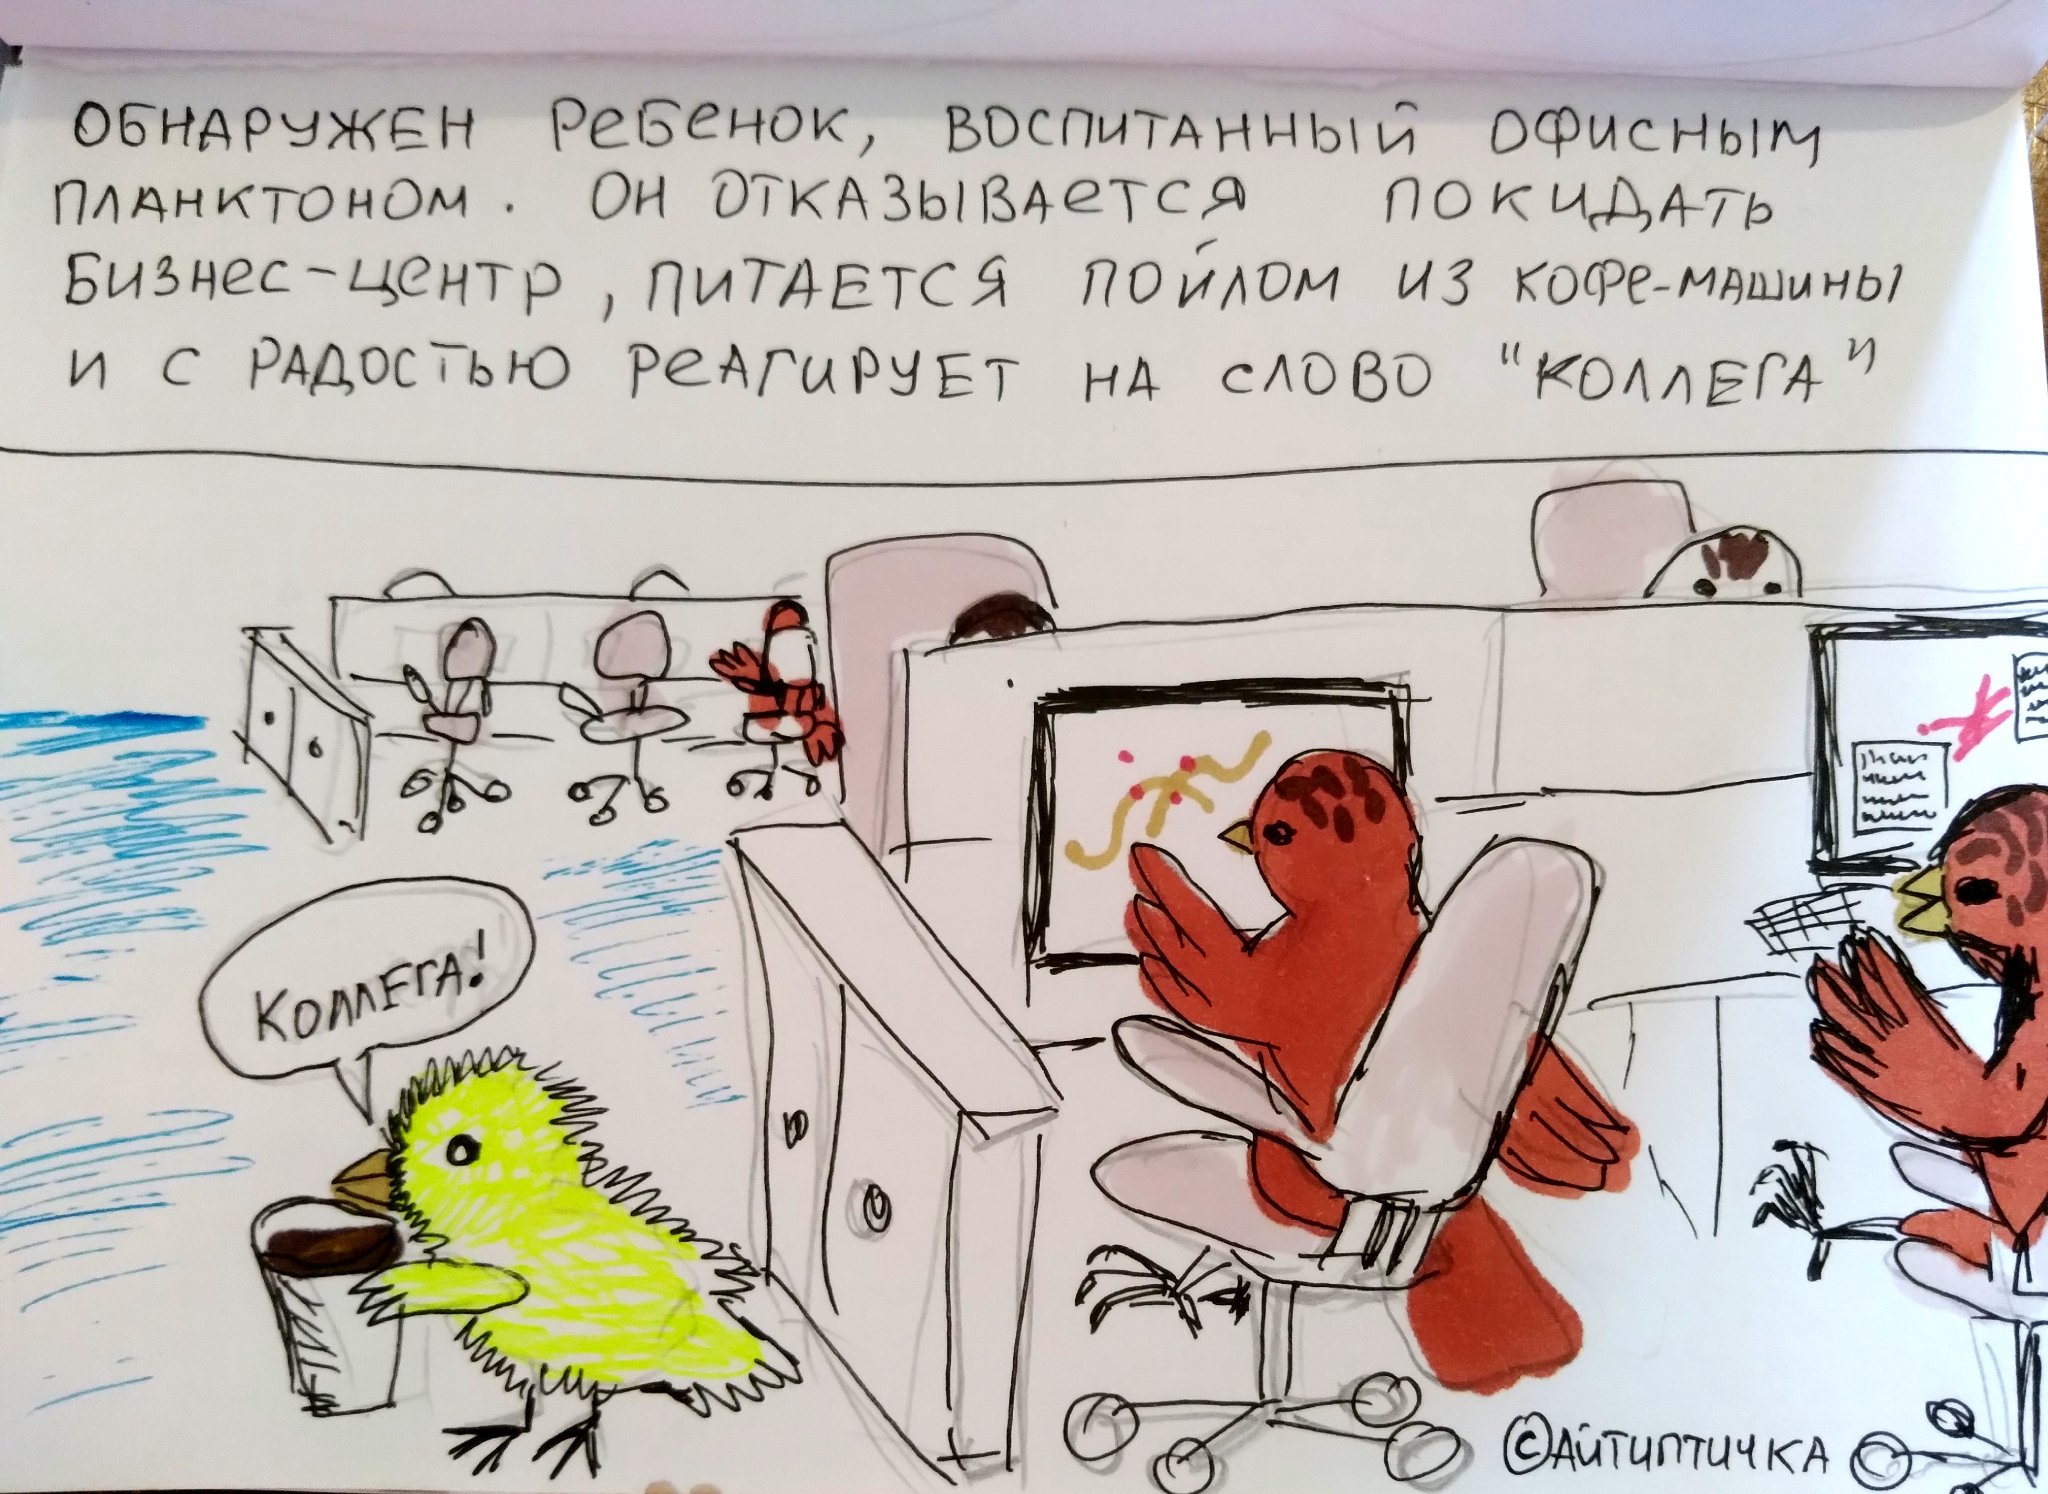 ОБНАРУЖЕН РЕБЕНОК, ВОСПИТАННЫЙ ОФИСНЫМ
ПЛАНКТОНОМ. ОН ОТКАЗЫВАЕТСЯ ПОКИДАТЬ
БИЗНЕС-ЦЕНТР, ПИТАЕТСЯ ПОЙЛОМ ИЗ КОФЕ-МАШИНЫ
И С РАДОСТЬЮ РЕАГИРУЕТ НА СЛОВО "КОЛЛЕГА"
КОЛЛЕГА!
©АЙТИПТИЧКА